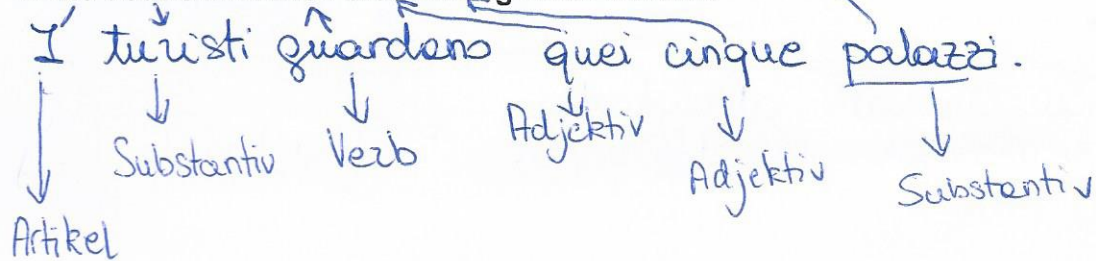 I turisti guardano quei cinque palazzi.
Substantiv Verb Adjektiv Adjektiv Substantiv
Artikel